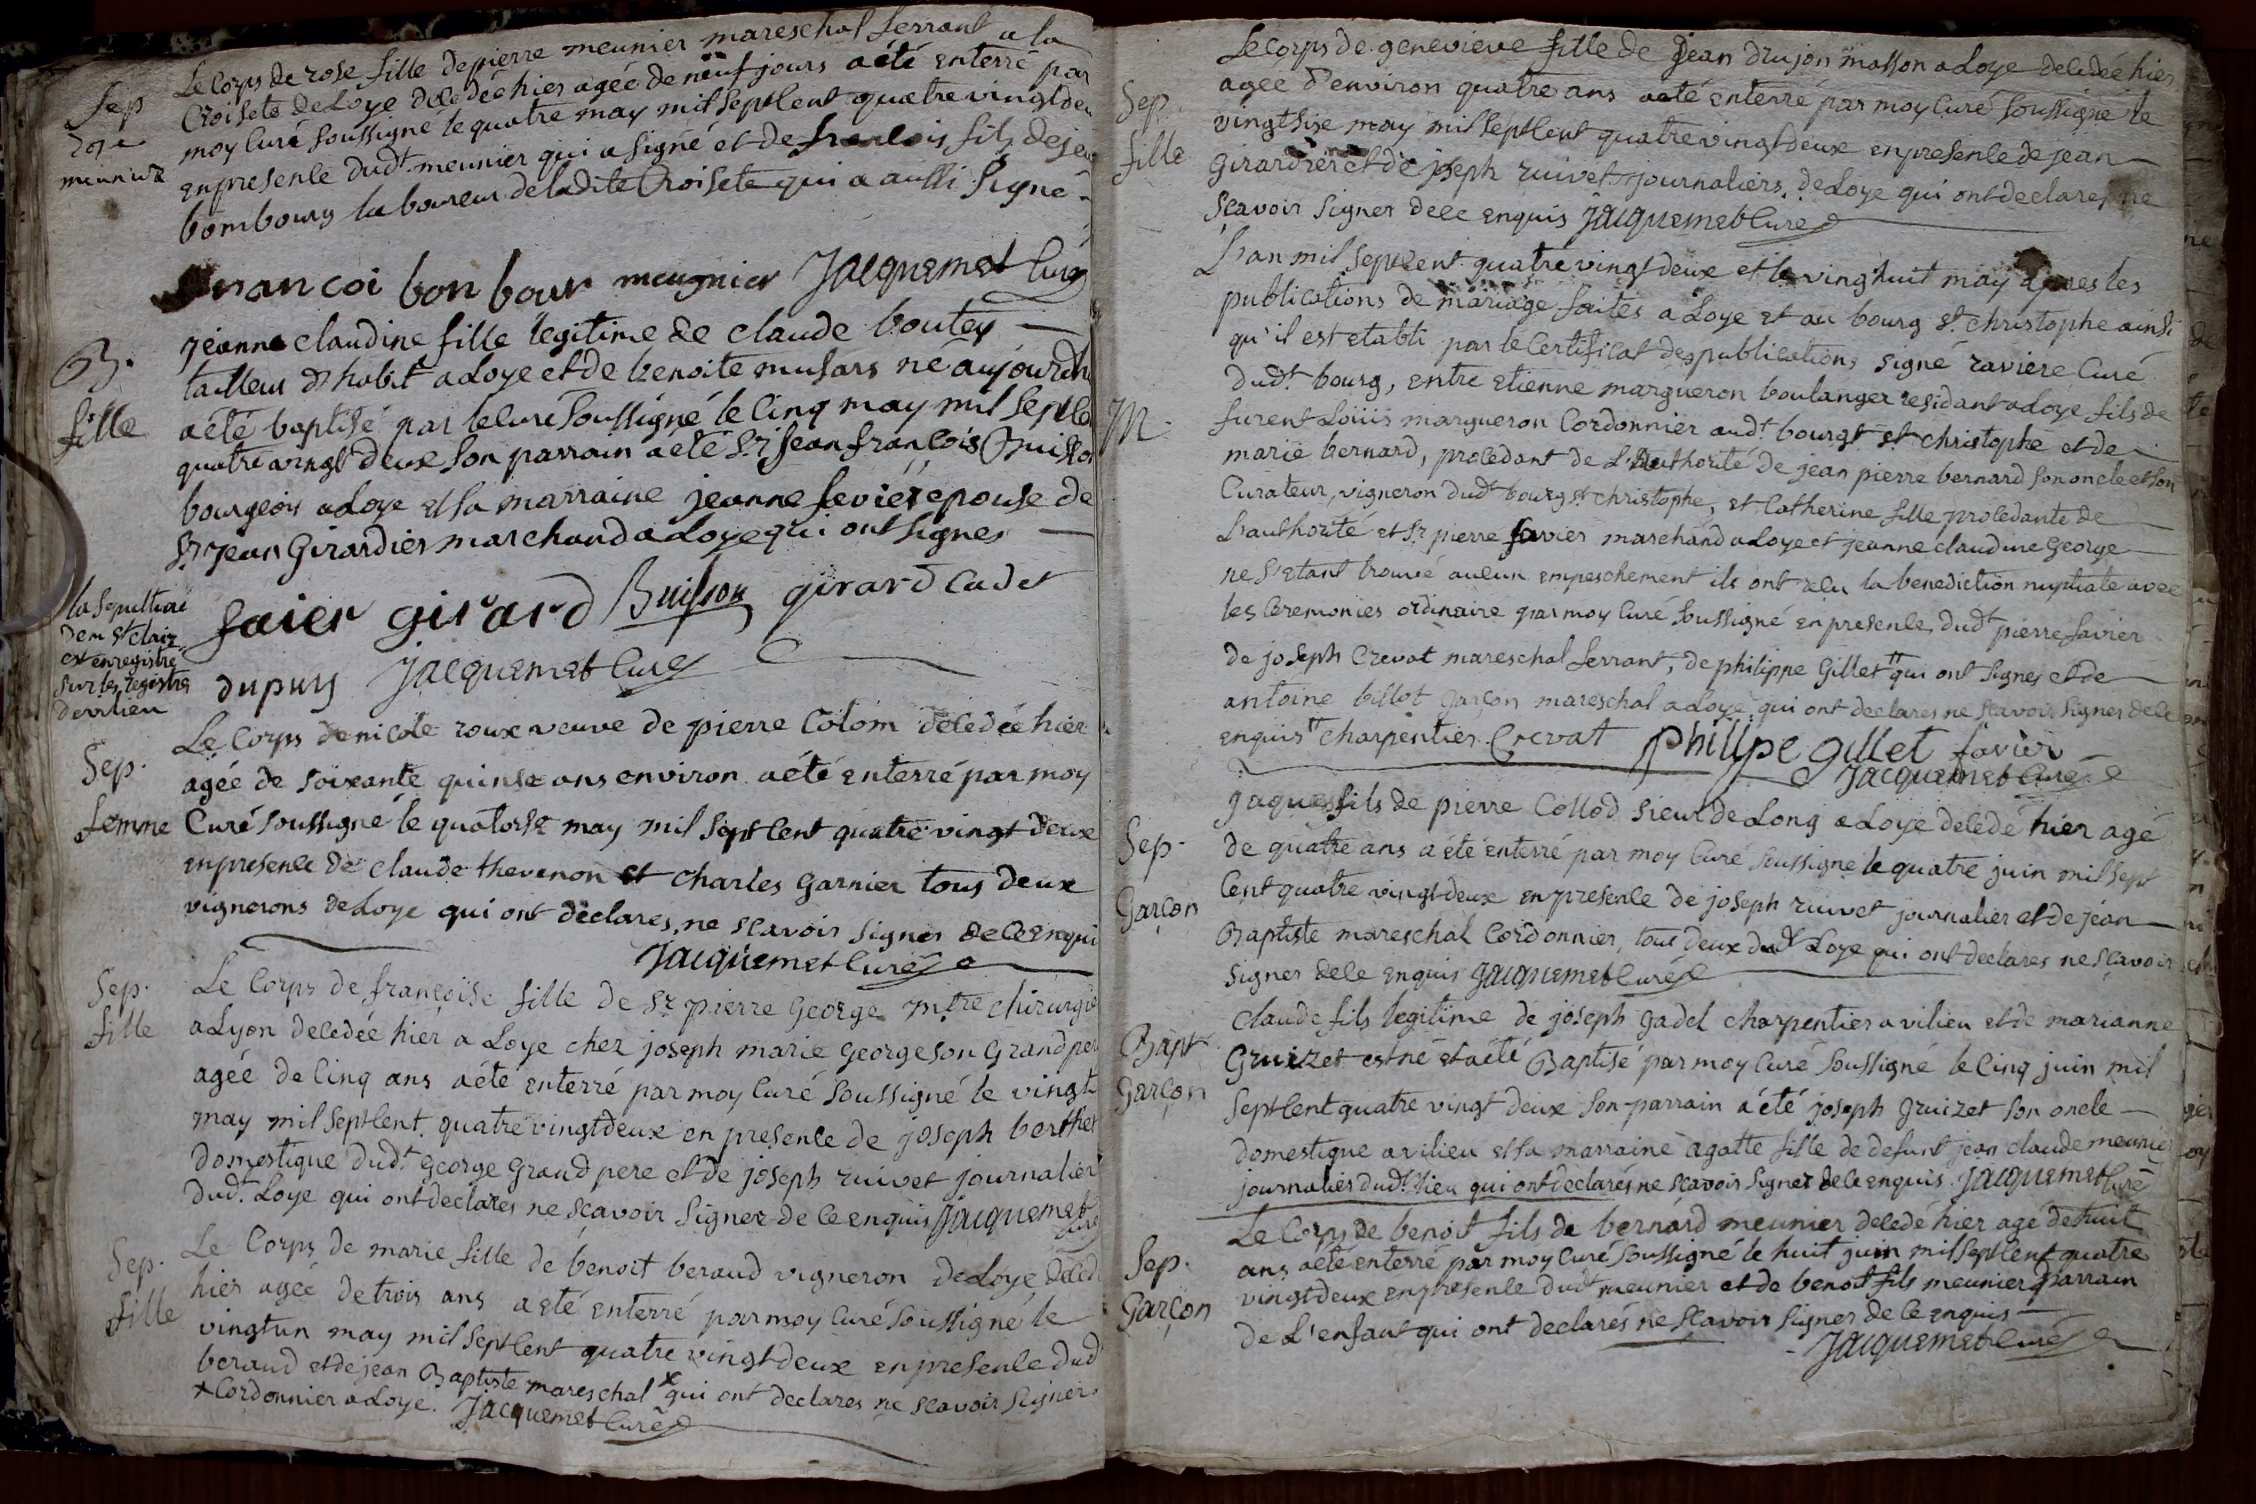 Sep
rose
meunier
Le Corps de rose fille de pierre meunier mareschal ferrant a la
Croisete de Loye decedée hier agée de neuf jours a été enterré par
moy Curé soussigné le quatre may mil sept cent quatre vingt deu
en presence dudt meunier qui a signé et de francois fils de jea
bombourg laboureur de ladite Croisete qui a aussi signé
francoi bon bour meugnier Jacquemet Curé
B.
fille
jeanne claudine fille legitime de claude boutey
tailleur d'habit a Loye et de benoite musars né aujourdhu
a été baptisé par le curé soussigné le Cinq may mil sept ce
quatre vingt deux son parrain a été Sr jean francois Buisson
bourgeois a Loye et sa marraine jeanne fevier epouse de
Sr jean Girardier marchand a Loye qui ont signes
favier girard Buisson girard cadet
dupuy Jacquemet Curé
la sepulture
de m St clair
est enregistre
sur les registre
de vilieu
Sep.
femme
Le Corps de nicole roux veuve de pierre Colom decedée hier
agée de soixante quinse ans environ a été enterré par moy
Curé soussigné le quatorse may mil sept cent quatre vingt deux
en presence de claude thevenon et charles garnier tous deux
vignerons de Loye qui ont declares ne scavoir signer de ce enqui
Jacquemet Curé
Sep.
fille
Le Corps de françoise fille de Sr pierre George mtre chirurgie
a Lyon decedée hier a Loye chez joseph marie George son Grand per
agée de Cinq ans a été enterré par moy Curé soussigné le vingt
may mil sept cent quatre vingt deux en presence de joseph berthet
domestique dudt George Grand pere et de joseph ruivet journalier
dudt Loye qui ont declares ne scavoir signer de ce enquis Jacquemet
Curé
Sep.
fille
Le Corps de marie fille de benoit beraud vigneron de Loye deced
hier agée de trois ans a eté enterré par moy Curé soussigné le
vingt un may mil sept cent quatre vingt deux en presence dud
beraud et de jean Baptiste mareschal x qui ont declares ne scavoir signer
x Cordonnier a Loye. Jacquemet Curé
Sep.
fille
Le Corps de genevieve fille de jean drujon masson a Loye decedée hier
agée d'environ quatre ans a été enterré par moy Curé soussigné le
vingt sixe may mil sept cent quatre vingt deux en presence de jean
Girardier et de joseph ruivet journaliers de Loye qui ont declares ne
scavoir signer de ce enquis Jacquemet Curé
M.
L'an mil sept cent quatre vingt deux et le vingt huit may apres les
publications de mariage faites a Loye et au bourg St christophe ainsi
qu'il est etabli par le Certificat des publications signé raviere Curé
dudt bourg, entre etienne margueron boulanger residant a Loye fils de
furent Louis margueron Cordonnier audt bourgt St christophe et de
marie bernard, procedant de L'Authorité de jean pierre bernard son oncle et son
Curateur, vigneron dudt bourg St christophe, et Catherine fille procedante de
L'authorité et Sr pierre favier marchand a Loye et jeanne claudine George
ne s'etant trouvé aucun empeschement ils ont reçu la benediction nuptiale avec
les Ceremonies ordinaire par moy Curé soussigné en presence dudt pierre favier
de joseph Crevat mareschal ferrant, de philippe Gillet tt qui ont signes et de
antoine billot garçon mareschal a Loye qui ont declares ne scavoir signer de ce
enquis tt charpentier. Crevat Philipe gillet favier
Jacquemet Curé
Sep.
Garçon
jaques fils de pierre Collod sieur de Long a Loye decedé hier agé
de quatre ans a été enterré par moy Curé soussigné le quatre juin mil sept
Cent quatre vingt deux en presence de joseph ruivet journalier et de jean
Baptiste mareschal Cordonnier, tous deux dudt Loye qui ont declares ne scavoir
signer de ce enquis Jacquemet Curé
Bapt
Garçon
Claude fils legitime de joseph gadel charpentier a vilieu et de marianne
Gruizet est né et a été Baptisé par moy Curé soussigné le Cinq juin mil
sept cent quatre vingt deux son parrain a été joseph gruizet son oncle
domestique a vilieu et sa marraine agatte fille de defunt jean claude meunier
journalier dudt lieu qui ont declarés ne scavoir signer de ce enquis Jacquemet Curé
Sep.
Garçon
Le Corps de benoit fils de bernard meunier decedé hier agé de huit
ans a été enterré par moy Curé soussigné le huit juin mil sept cent quatre
vingt deux en presence dudt meunier et de benoit fils meunier parrain
de L'enfant qui ont declarés ne scavoir signer de ce enquis
Jacquemet Curé